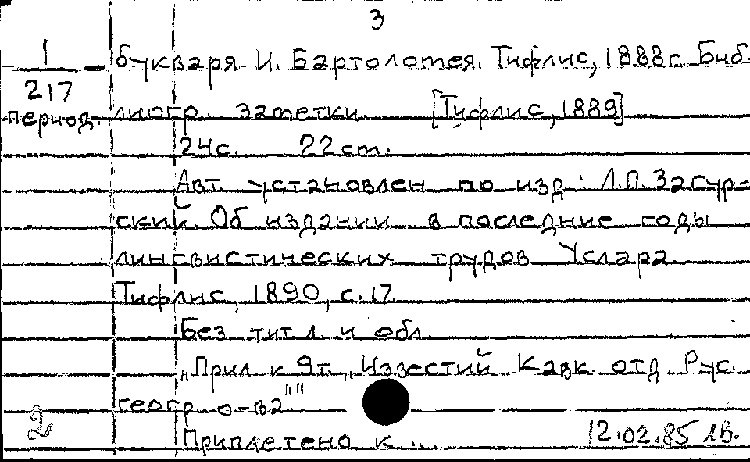 3
1/217 букваря И. Бартоломея. Тифлис, 1888 г. Биб-
период. лиогр. заметки. [Тифлис, 1889]
24с. 22 cm.
Авт. установлен по изд.: Л.П. Загур-
ский. Об издании в последние годы
лингвистических трудов Услара.
Тифлис, 1890, с. 17.
Без тит. л. и обл.
"Прил. к 9т. "Известий Кавк. отд. Рус.
геогр. о-ва""
2 Приплетено к ... 12.02.85 лв.